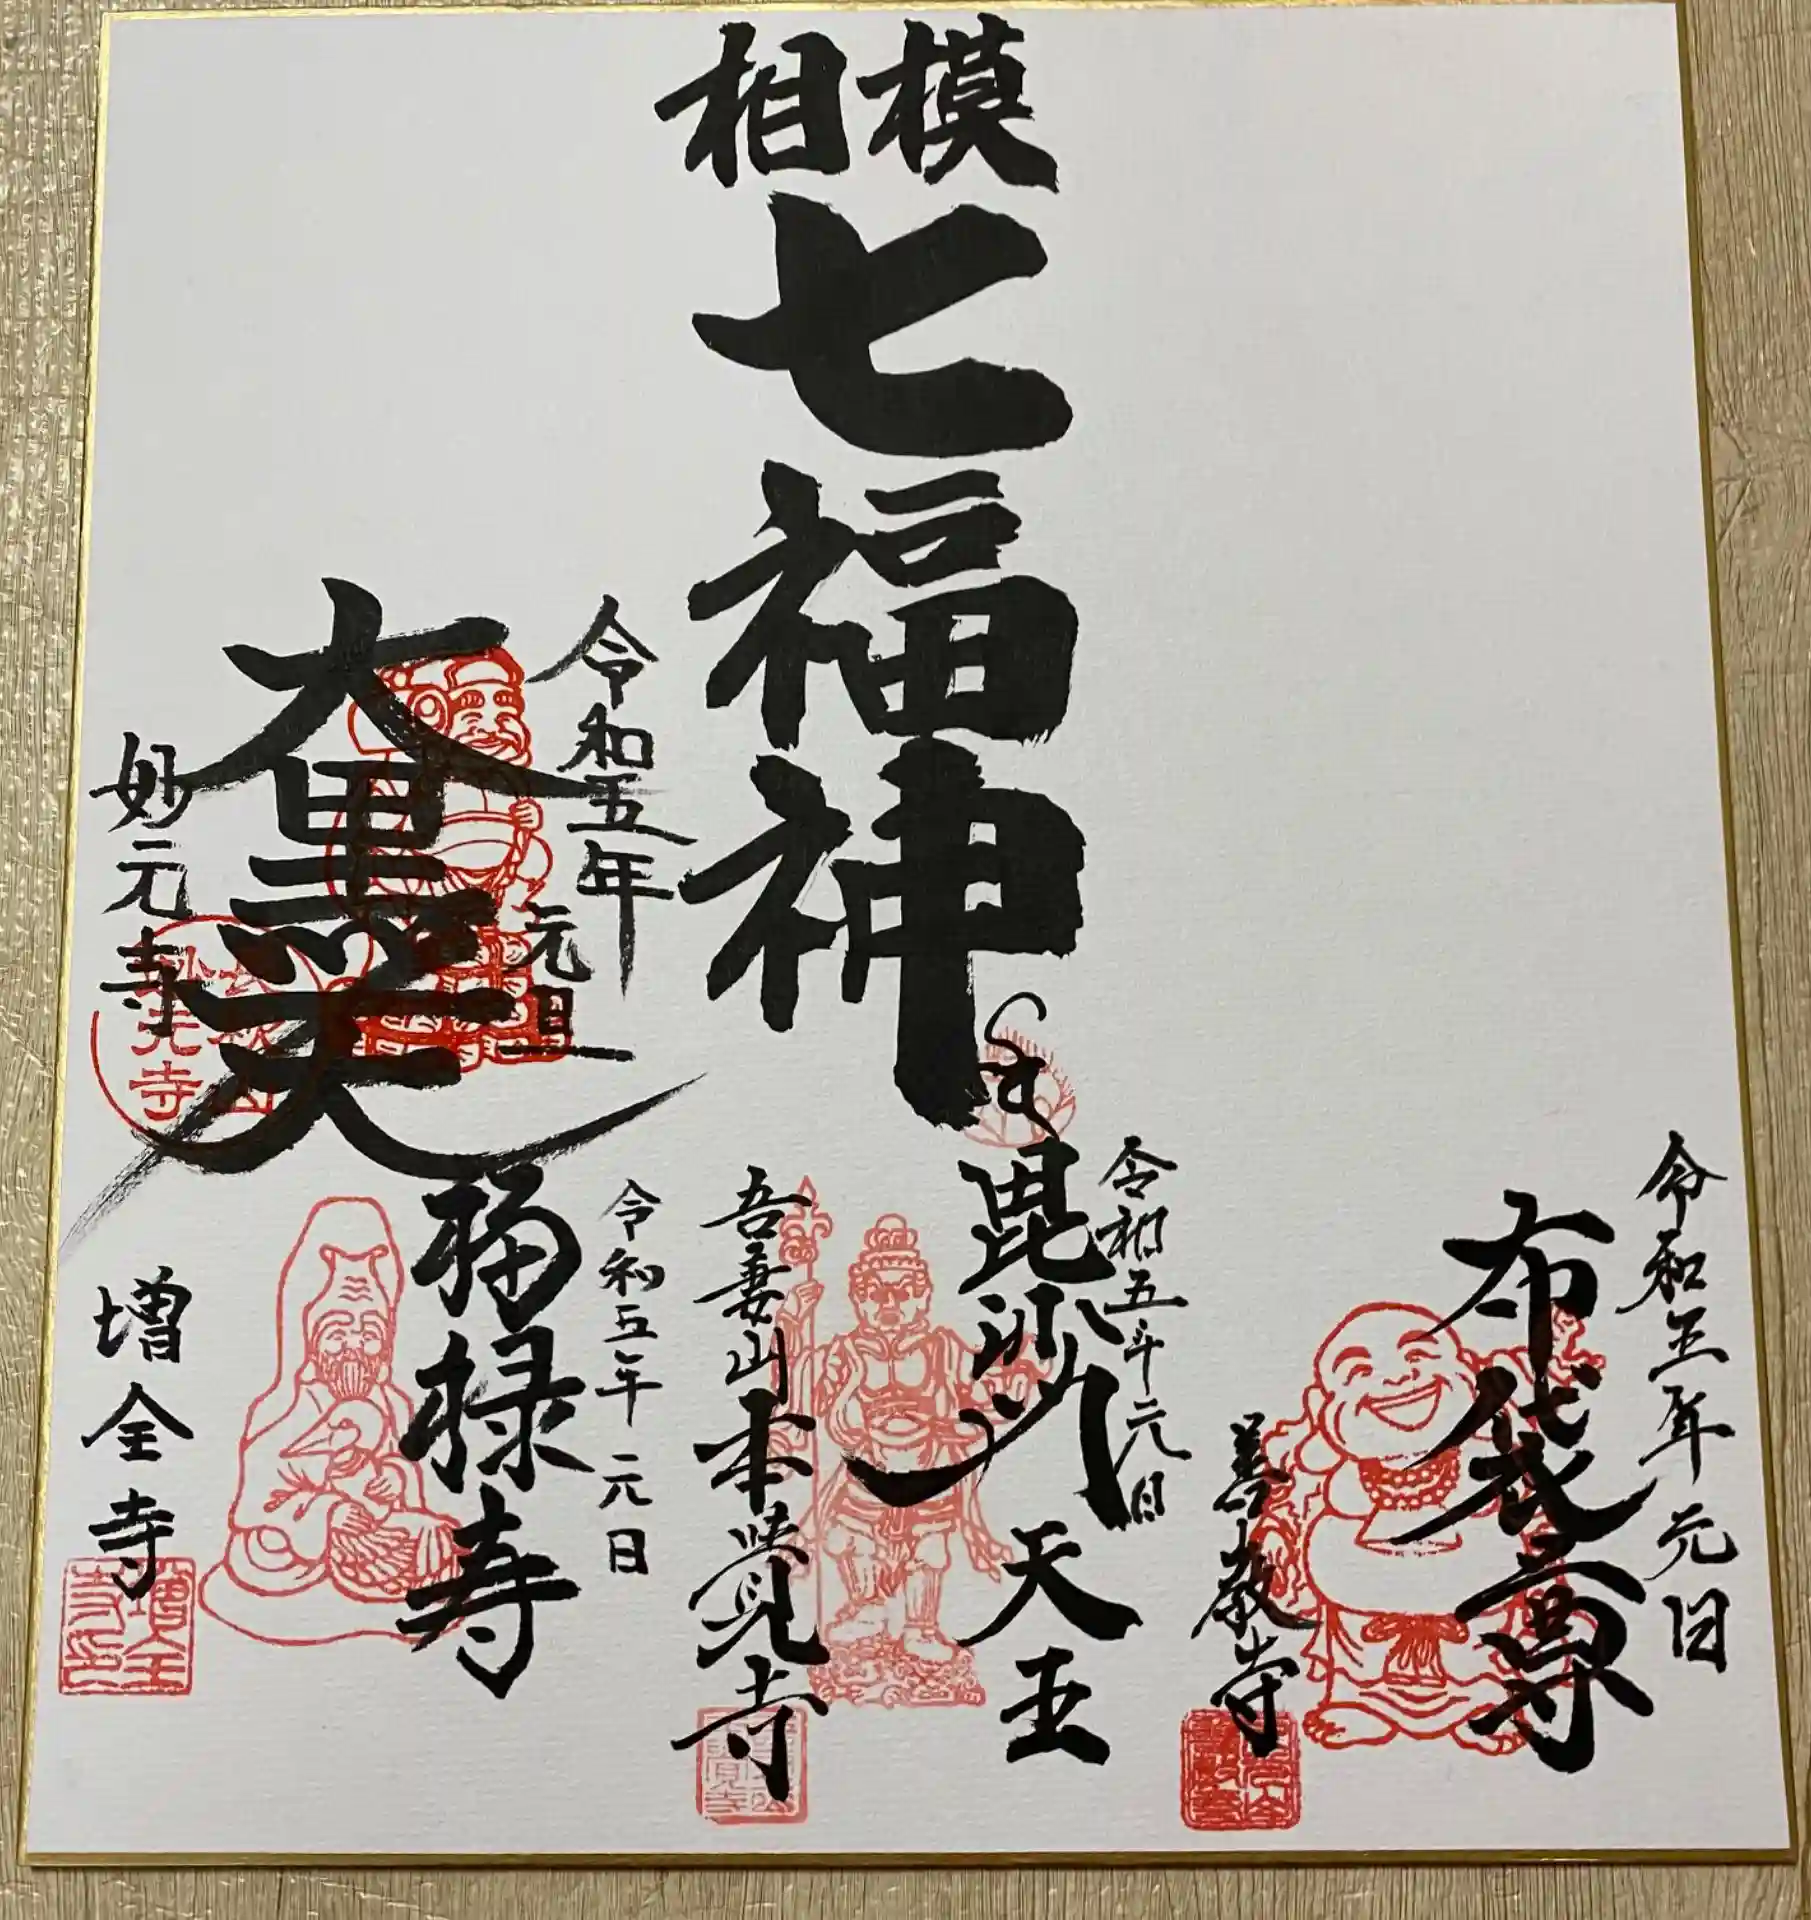 相模
七福神
令和五年元日
布袋尊
善教寺
令和五年元日
毘沙門天王
吾妻山本覚寺
令和五年
元旦
大黒天
妙元寺
令和五年元日
福禄寿
増全寺